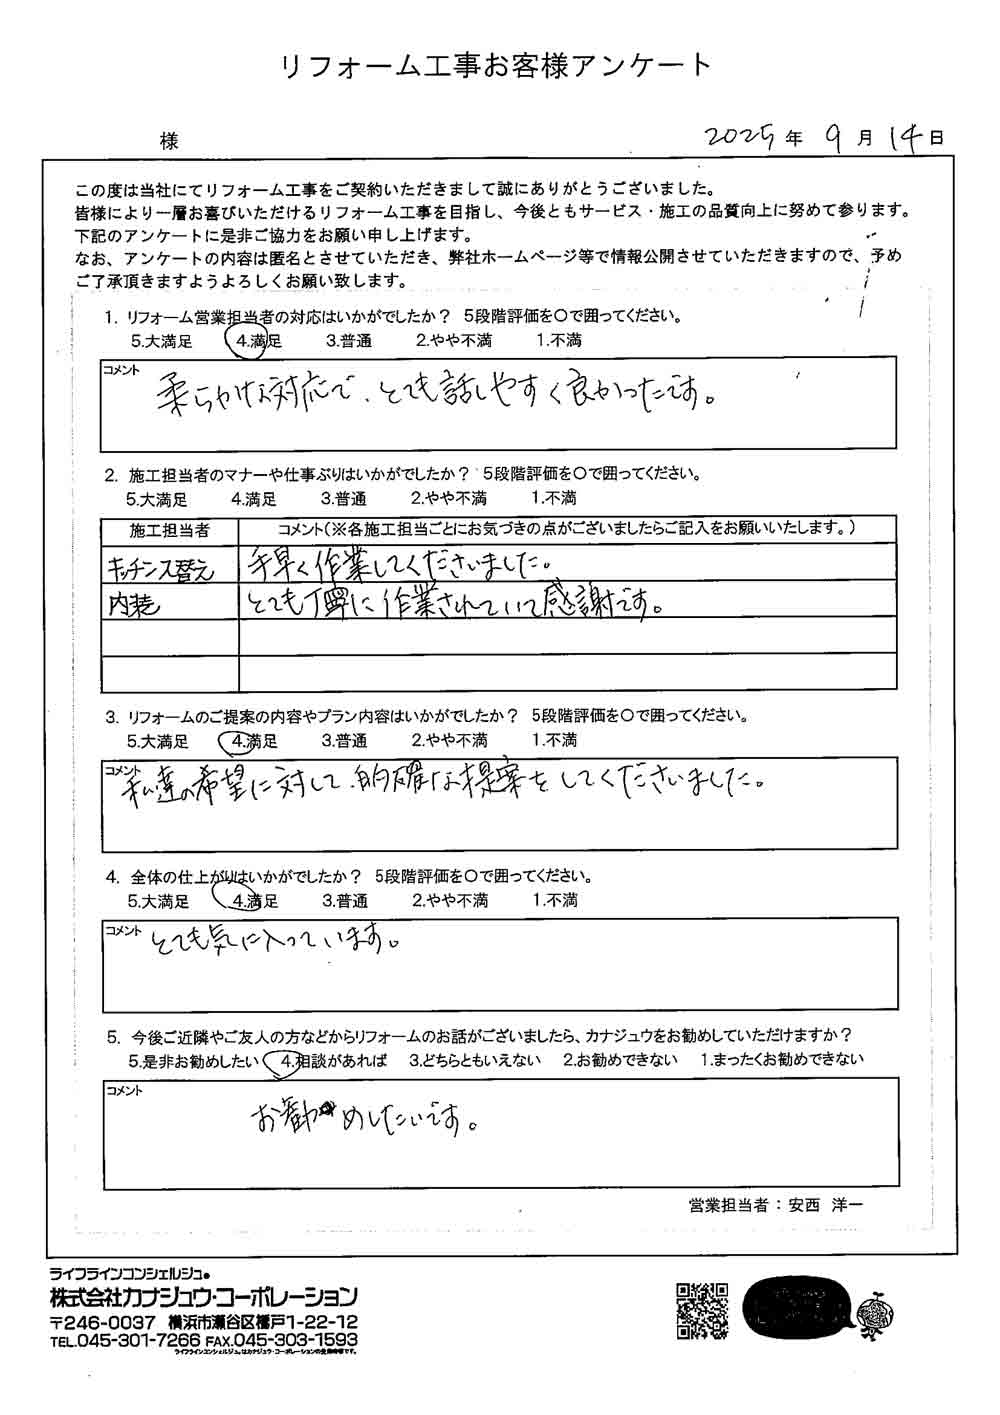 リフォーム工事お客様アンケート
様 2025年 9月 14日
この度は当社にてリフォーム工事をご契約いただきまして誠にありがとうございました。
皆様により一層お喜びいただけるリフォーム工事を目指し、今後ともサービス・施工の品質向上に努めて参ります。
下記のアンケートに是非ご協力をお願い申し上げます。
なお、アンケートの内容は匿名とさせていただき、弊社ホームページ等で情報公開させていただきますので、予め
ご了承頂きますようよろしくお願い致します。
1. リフォーム営業担当者の対応はいかがでしたか? 5段階評価を○で囲ってください。
5.大満足 4.満足 3.普通 2.やや不満 1.不満
コメント
柔らかな対応で、とても話しやすく良かったです。
2. 施工担当者のマナーや仕事ぶりはいかがでしたか? 5段階評価を○で囲ってください。
5.大満足 4.満足 3.普通 2.やや不満 1.不満
施工担当者 コメント(※各施工担当ごとにお気づきの点がございましたらご記入をお願いいたします。)
キッチンス替え 手早く作業してくださいました。
内装 とても丁寧に作業されていて感謝です。
3. リフォームのご提案の内容やプラン内容はいかがでしたか? 5段階評価を○で囲ってください。
5.大満足 4.満足 3.普通 2.やや不満 1.不満
コメント
私達の希望に対して、的確な提案をしてくださいました。
4. 全体の仕上がりはいかがでしたか? 5段階評価を○で囲ってください。
5.大満足 4.満足 3.普通 2.やや不満 1.不満
コメント
とても気に入っています。
5. 今後ご近隣やご友人の方などからリフォームのお話がございましたら、カナジュウをお勧めしていただけますか?
5.是非お勧めしたい 4.相談があれば 3.どちらともいえない 2.お勧めできない 1.まったくお勧めできない
コメント
お勧めしたいです。
営業担当者：安西 洋一
ライフラインコンシェルジュ®
株式会社カナジュウ・コーポレーション
〒246-0037 横浜市瀬谷区橋戸1-22-12
TEL.045-301-7266 FAX.045-303-1593
ライフラインコンシェルジュ®はカナジュウ・コーポレーションの登録商標です。